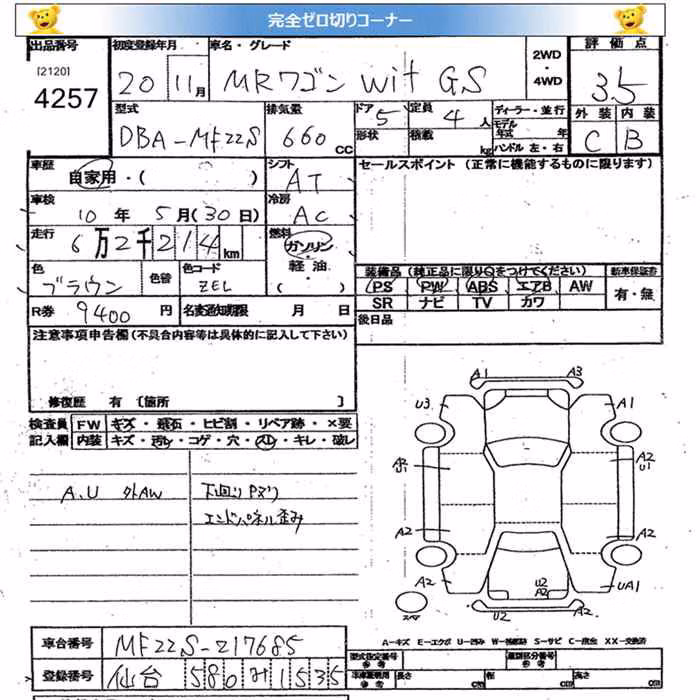 完全ゼロ切りコーナー
出品番号 初度登録年月 車名・グレード 2WD・4WD 評価点
[2120]
4257 20 11月 MRワゴン wit GS 3.5
型式 排気量 ドア 5 定員 4人 ディーラー・並行 外装 内装
DBA-MF22S 660cc 形状 積載 kg モデル年式 年 ハンドル 左・右 C B
車歴 シフト セールスポイント (正常に機能するものに限ります)
自家用・( ) AT
車検 冷房
10年 5月(30日) AC
走行 燃料
6万2千214km ガソリン・軽油・( )
色 色替 色コード 装備品 (純正品に限り○をつけてください) 新車保証書
ブラウン ZEL PS PW ABS エアB AW 有・無
SR ナビ TV カワ
R券 9400円 名変通知期限 月 日 後日品
注意事項申告欄 (不具合内容等は具体的に記入して下さい)
修復歴 有 〔箇所 〕
検査員 FW キズ・飛石・ヒビ割・リペア跡・×要
記入欄 内装 キズ・汚レ・コゲ・穴・スレ・キレ・破レ
A.U 外AW 下回りPヌリ
エンドパネル歪み
A1 A3
U3 A1
A2 U1
A2 A2
A2 U2 A2 UA1
スペア U2 A2
A-キズ E-エクボ U-凹み W-補修跡 S-サビ C-腐食 XX-交換済
車台番号 MF22S-217685 型式指定番号 参考 類別区分番号 参考
登録番号 仙台 580 み 1535 車庫証明用 参考 長さ 幅 高さ